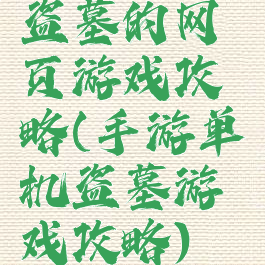 盗墓的网
页游戏攻
略(手游单
机盗墓游
戏攻略)